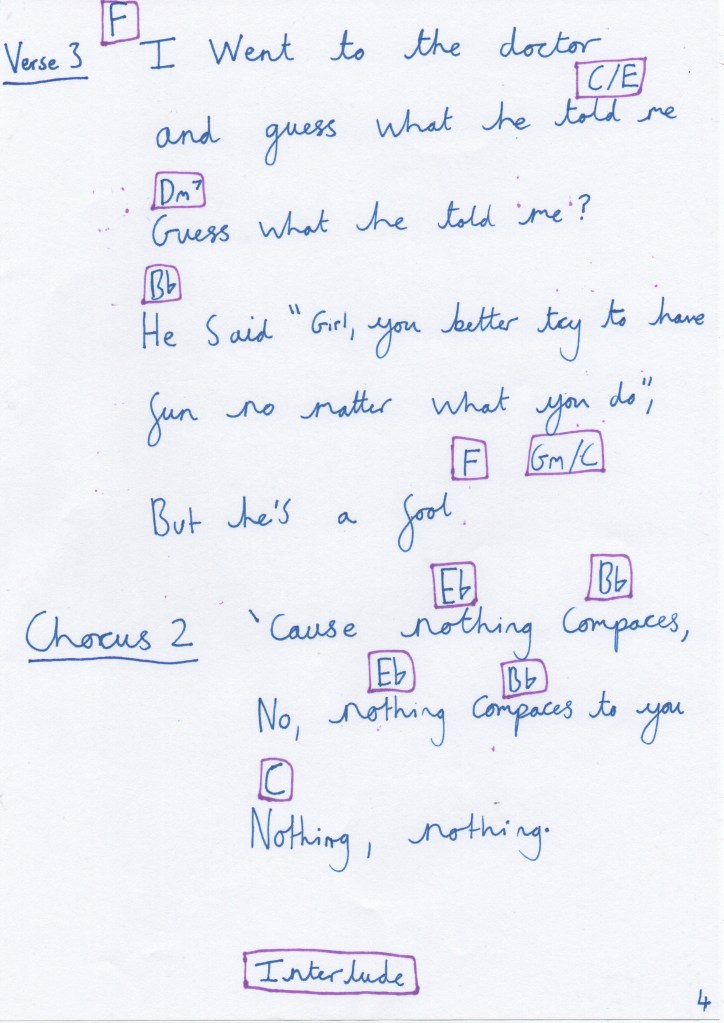 F
Verse 3 I Went to the doctor
C/E
and guess what he told me
Dm7
Guess what he told me?
Bb
He Said "Girl, you better try to have
fun no matter what you do",
F Gm/C
But he's a fool
Eb Bb
Chorus 2 'Cause nothing Compares,
Eb Bb
No, nothing Compares to you
C
Nothing, nothing.
Interlude
4